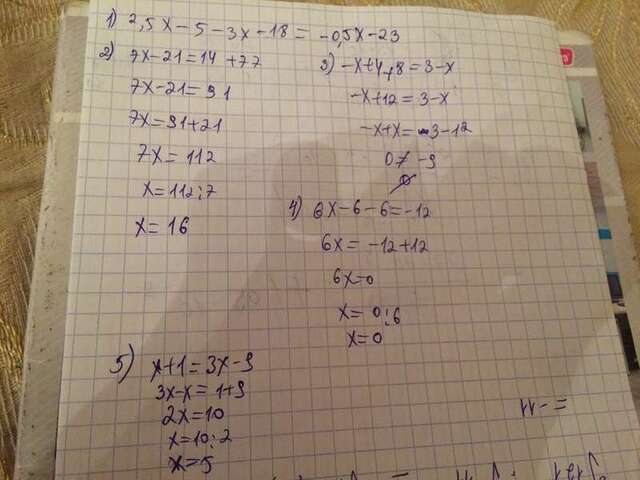 1) 2,5x - 5 - 3x - 18 = -0,5x - 23
2) 7x - 21 = 14 + 77
7x - 21 = 91
7x = 91 + 21
7x = 112
x = 112 : 7
x = 16
3) -x + 4 + 8 = 3 - x
-x + 12 = 3 - x
-x + x = 3 - 12
0 ≠ -9
∅
4) 6x - 6 - 6 = -12
6x = -12 + 12
6x = 0
x = 0 : 6
x = 0
5) x + 1 = 3x - 9
3x - x = 1 + 9
2x = 10
x = 10 : 2
x = 5